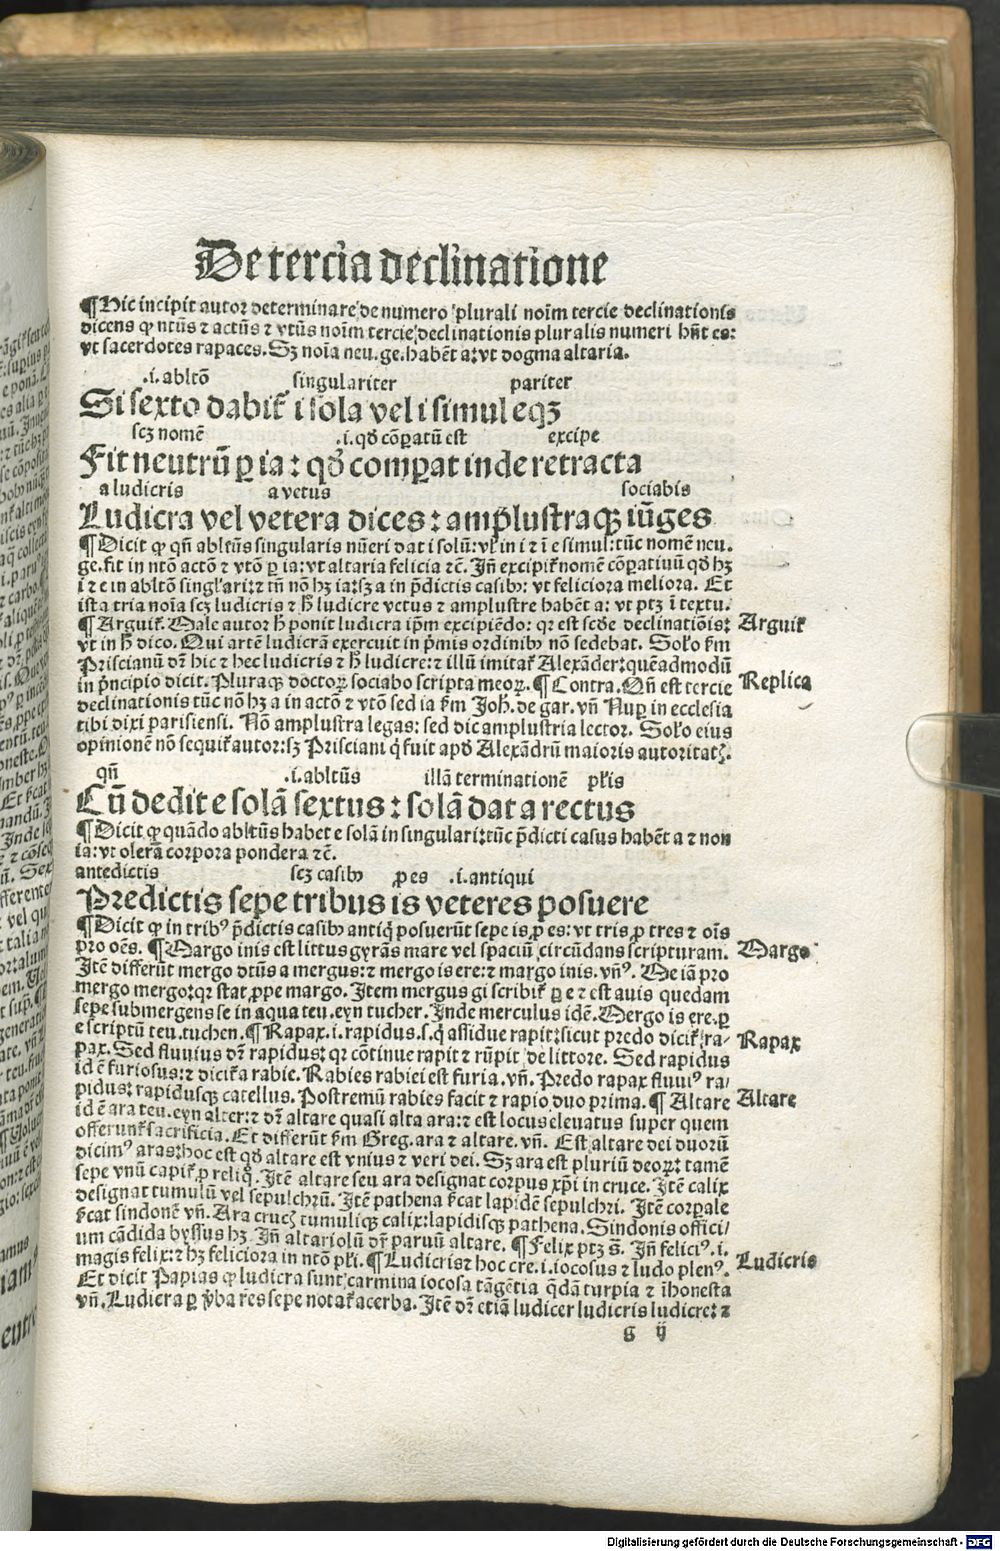 De tercia declinatione
¶Hic incipit autor determinare de numero plurali noīm tercie declinationis
dicens ꝙ ntūs ⁊ actūs ⁊ vtūs noīm tercie declinationis pluralis numeri hn̄t es:
vt sacerdotes rapaces. Sꝫ noīa neu.ge.habēt a:vt dogma altaria.
.i. abltō singulariter pariter
Si sexto dabit̄ i sola vel i simul eqꝫ
scꝫ nomē .i. qd̄ cōpatū est excipe
Fit neutrū ꝑ ia: qd̄ comꝑat inde retracta
a ludicris a vetus sociabis
Ludicra vel vetera dices: amplustraqꝫ iūges
¶Dicit ꝙ qn̄ abltūs singularis nūeri dat i solū: vl̓ in i ⁊ ī e simul: tūc nomē neu.
ge. fit in ntō actō ⁊ vtō ꝑ ia: vt altaria felicia ⁊c̄. Jn̄ excipit̄ nomē cōpatiuū qd̄ hꝫ
i ⁊ e in abltō singl̓ari: ⁊ tn̄ nō hꝫ ia: sꝫ a in p̄dictis casibꝫ: vt feliciora meliora. Et
ista tria noīa scꝫ ludicris ⁊ h̄ ludicre vetus ⁊ amplustre habēt a: vt ptꝫ ī textu.
¶Arguit̄. Male autor h̄ ponit ludicra ip̄m excipiēdo: qꝛ est scd̄e declinatiōis:
vt in h̄ dico. Qui artē ludicrā exercuit in p̄mis ordinibꝫ nō sedebat. Solō km̄
Priscianū dꝛ̄ hic ⁊ hec ludicris ⁊ h̄ ludicre: ⁊ illū imitat̄ Alexāder: quēadmodū
in p̄ncipio dicit. Pluraqꝫ doctoꝝ sociabo scripta meoꝝ. ¶Contra. Qn̄ est tercie
declinationis tūc nō hꝫ a in actō ⁊ vtō sed ia km̄ Joh̄. de gar. vn̄ Nuꝑ in ecclesia
tibi dixi parisiensi. Nō amplustra legas: sed dic amplustria lector. Solō eius
opinionē nō sequit̄ autor: sꝫ Prisciani q̄ fuit apd̄ Alexādrū maioris autoritatꝭ.
qn̄ .i. abltūs illā terminationē pl̓is
Cū dedit e solā sextus: solā dat a rectus
¶Dicit ꝙ quādo abltūs habet e solā in singulari: tūc p̄dicti casus habēt a ⁊ non
ia: vt olera corpora pondera ⁊c̄.
antedictis scꝫ casibꝫ ꝓ es .i. antiqui
Predictis sepe tribus is veteres posuere
¶Dicit ꝙ in tribꝰ p̄dictis casibꝫ antiq̄ posuerūt sepe is ꝓ es: vt tris ꝓ tres ⁊ oīs
pro oēs. ¶Margo inis est littus gyrās mare vel spaciū circūdans scripturam.
Jtē differūt mergo dtūs a mergus: ⁊ mergo is ere: ⁊ margo inis. vn̄ꝰ. De iā pro
mergo mergo: qꝛ stat ꝓpe margo. Jtem mergus gi scribit̄ ꝑ e ⁊ est auis quedam
sepe submergens se in aqua teu. eyn tucher. Jnde merculus idē. Mergo is ere. ꝑ
e scriptū teu. tuchen. ¶Rapax .i. rapidus. s. q̄ assidue rapit: sicut predo dicit̄ ra-
pax. Sed fluuius dꝛ̄ rapidus: qꝛ cōtinue rapit ⁊ rūpit de littore. Sed rapidus
id ē furiosus: ⁊ dicit̄ a rabie. Rabies rabiei est furia. vn̄. Predo rapax fluuiꝰ ra/
pidus: rapidusqꝫ catellus. Postremū rabies facit ⁊ rapio duo prima. ¶Altare
id ē ara teu. eyn alter: ⁊ dꝛ̄ altare quasi alta ara: ⁊ est locus eleuatus super quem
offerunt̄ sacrificia. Et differūt km̄ Greg. ara ⁊ altare. vn̄. Est altare dei duorū
dicimꝰ aras: hoc est qd̄ altare est vnius ⁊ veri dei. Sꝫ ara est pluriū deoꝝ: tamē
sepe vnū capit̄ ꝓ reliq̄. Jtē altare seu ara designat corpus xp̄i in cruce. Jtē calix
designat tumulū vel sepulchrū. Jtē pathena k̄cat lapidē sepulchri. Jtē corpale
k̄cat sindonē vn̄. Ara crucꝭ tumuliqꝫ calix: lapidisqꝫ pathena. Sindonis offici/
um cādida byssus hꝫ. Jn̄ altariolū dꝛ̄ paruū altare. ¶Felix ptꝫ s̄. Jn̄ feliciꝰ .i.
magis felix: ⁊ hꝫ feliciora in ntō pl̓i. ¶Ludicris ⁊ hoc cre .i. iocosus ⁊ ludo plenꝰ.
Et dicit Papias ꝙ ludicra sunt carmina iocosa tāgētia q̄dā turpia ⁊ ihonesta
vn̄. Ludicra ꝑ v̓ba res sepe notat̄ acerba. Jtē dꝛ̄ etiā ludicer ludicris ludicre: ⁊
g ij
Arguit̄
Replica
Margo
Rapax
Altare
Ludicris
Digitalisierung gefördert durch die Deutsche Forschungsgemeinschaft - DFG